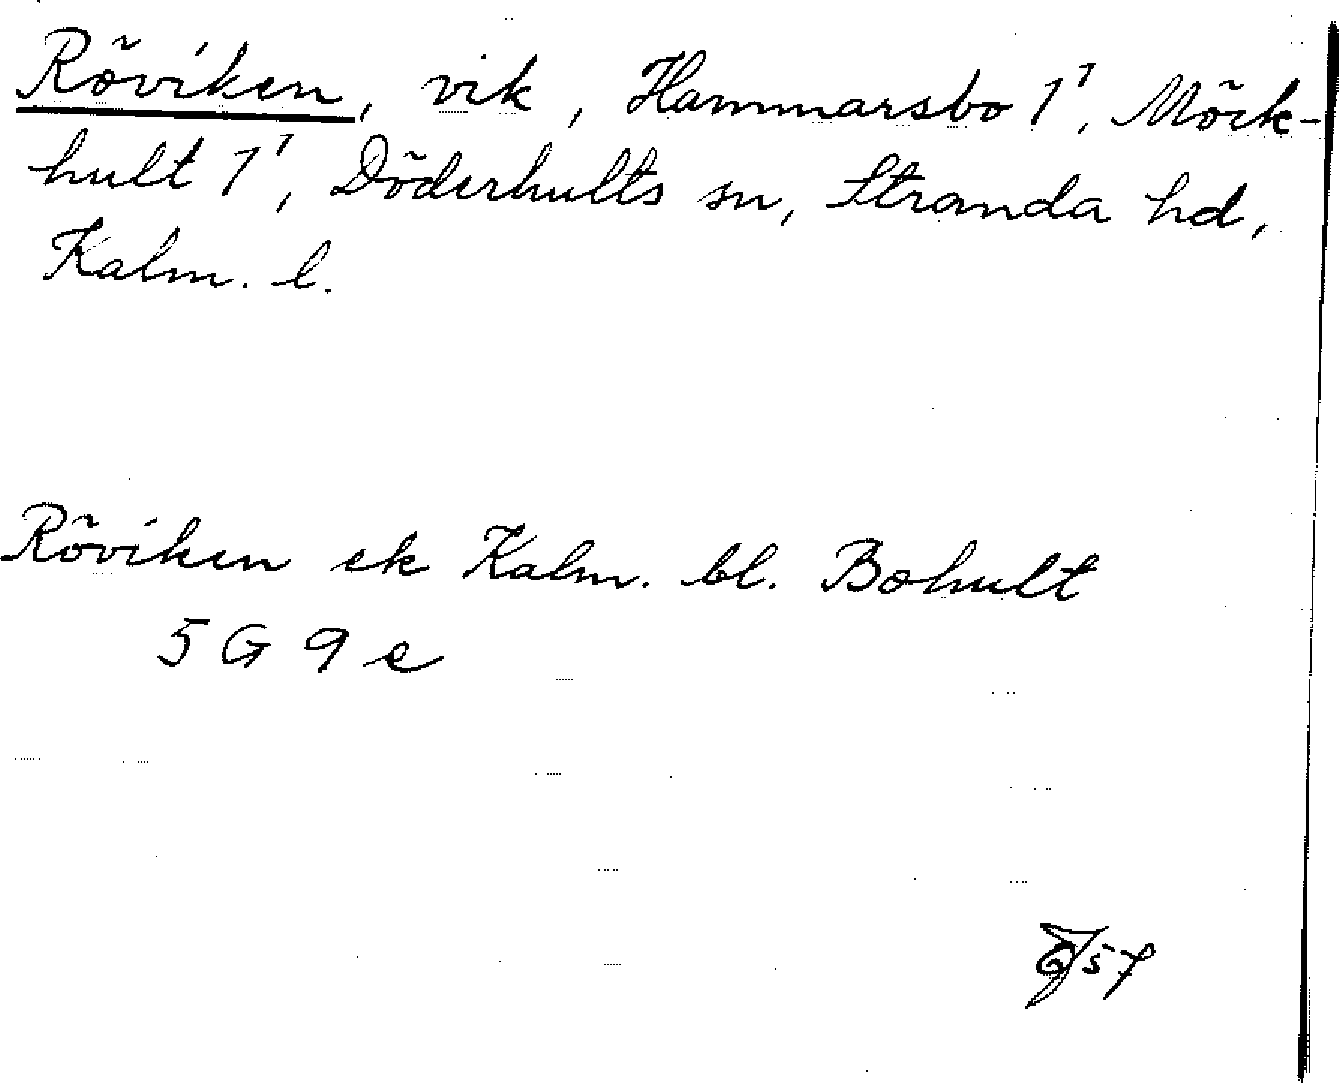 Röviken, vik, Hammarsbo 1¹, Möck-
hult 1¹, Döderhults sn, Stranda hd,
Kalm. l.
Röviken ek Kalm. bl. Bohult
5 G 9 e
57